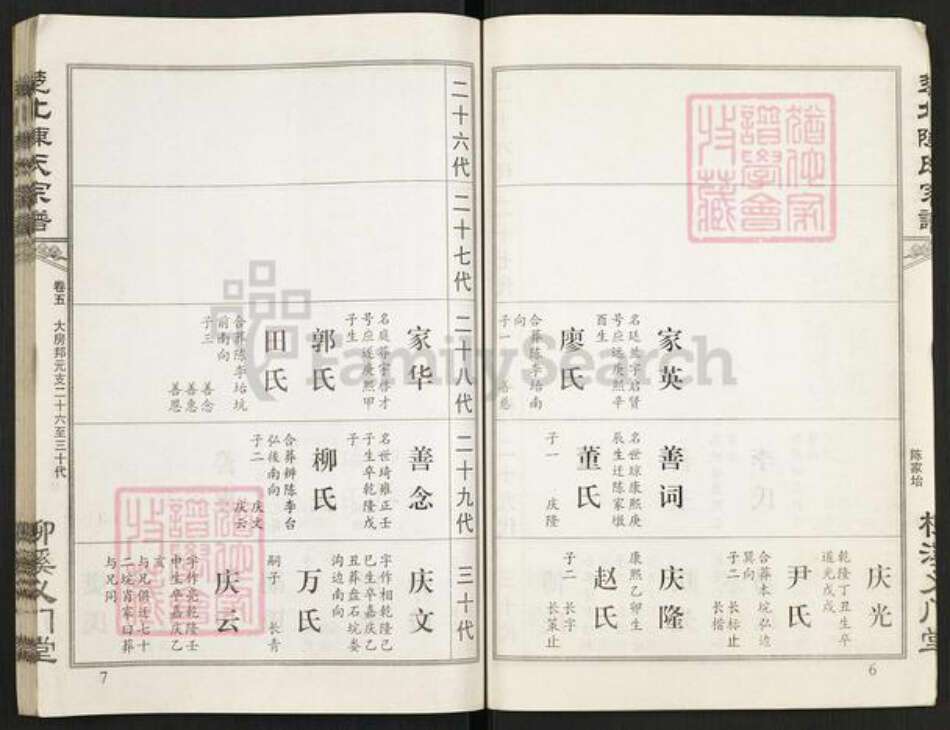 陈氏宗谱
陈家坮
柳溪义门堂
6
家英
名廷兰字启贤
号应远康熙辛
酉生
廖氏
合葬陈李坮南
向
子一
善词
名世琼康熙庚
辰生迁陈家墩
董氏
子一
庆隆
庆光
乾隆丁丑生卒
道光戊戌
尹氏
合葬本垸弘边
巽向
子二
长标止
长楷
庆隆
康熙乙卯生
赵氏
子二
长字
长策止
二十六代
二十七代
二十八代
二十九代
三十代
家华
号应近康熙甲
子生
郭氏
田氏
合葬陈李坮坑
前南向
子三
善念
善惠
善恩
善念
名世琦雍正壬
子生卒乾隆戊
子
柳氏
合葬辨陈李台
弘後南向
子二
庆文
庆云
庆文
字作相乾隆己
巳生卒嘉庆乙
丑葬盘石垸娄
沟边南向
万氏
嗣子
长青
庆云
字作亮乾隆壬
申生卒嘉庆乙
亥
与兄俱迁七十
二垸肖家臼葬
与兄同
卷五
大房邦元支二十六至三十代
柳溪义门堂
7
FamilySearch